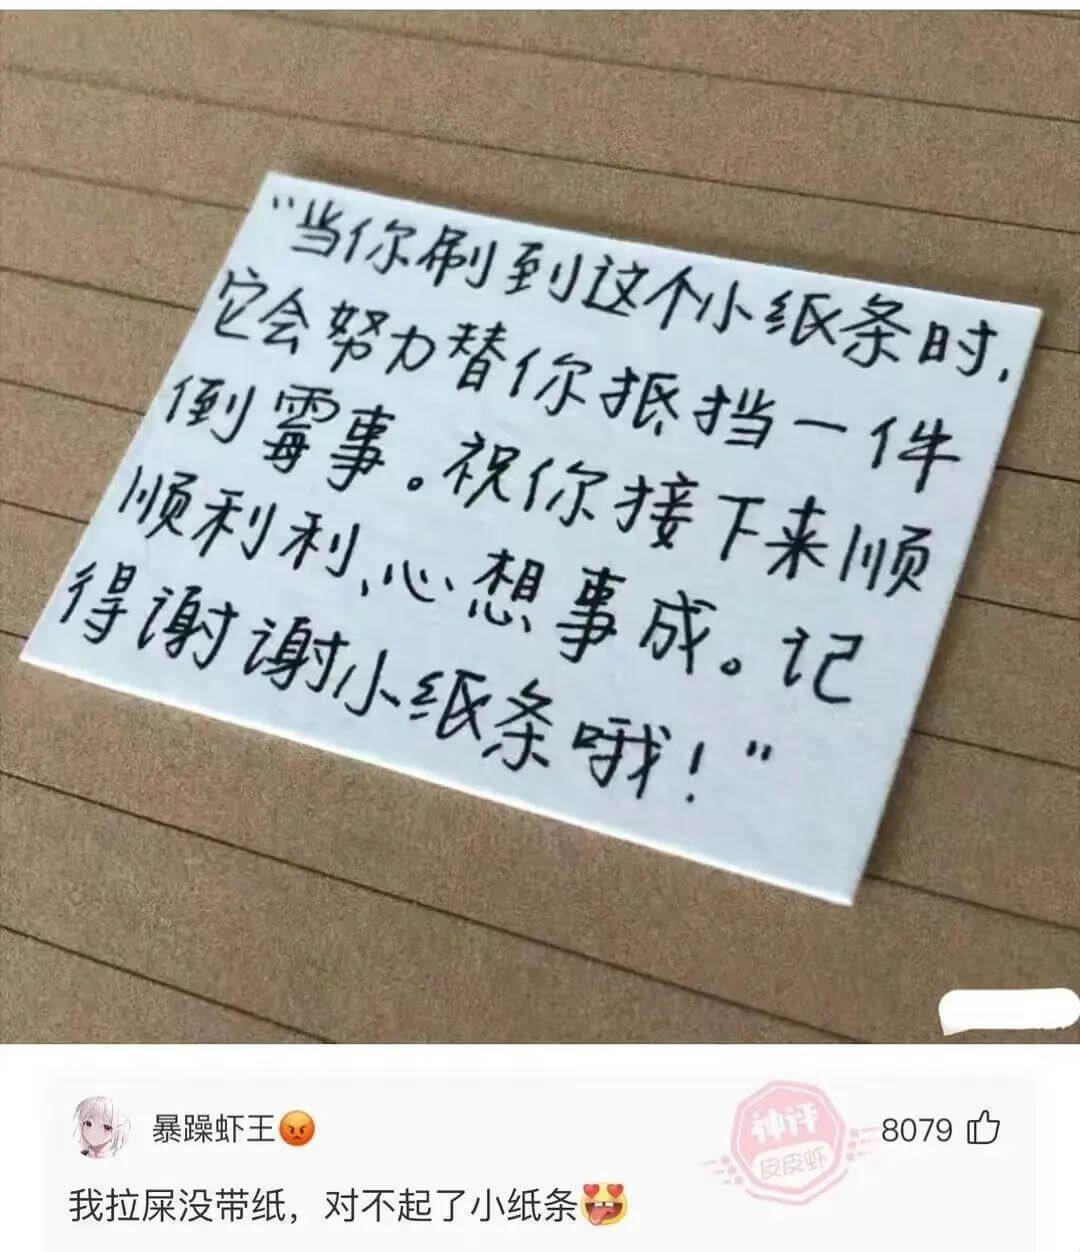 “当你刷到这个小纸条时,
它会努力替你抵挡一件
倒霉事。祝你接下来顺
顺利利、心想事成。记
得谢谢小纸条哦！”
暴躁虾王😡
神评
皮皮虾
8079
我拉屎没带纸，对不起了小纸条😍